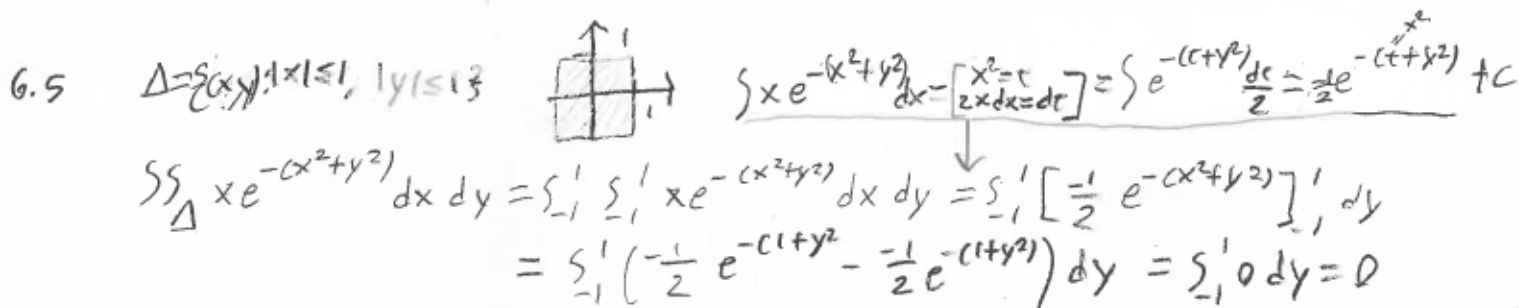 6.5 Δ={(x,y): |x|≤1, |y|≤1} 1 1 ∫xe^{-(x²+y²)}dx=[x²=t 2xdx=dt]=∫e^{-(t+y²)}dt/2=-1/2 e^{-(t+y²)}+C x²
∫∫_Δ xe^{-(x²+y²)}dx dy=∫_{-1}^1 ∫_{-1}^1 xe^{-(x²+y²)}dx dy=∫_{-1}^1[-1/2 e^{-(x²+y²)}]_{-1}^1 dy
=∫_{-1}^1(-1/2 e^{-(1+y²}--1/2 e^{-(1+y²)})dy=∫_{-1}^1 0 dy=0